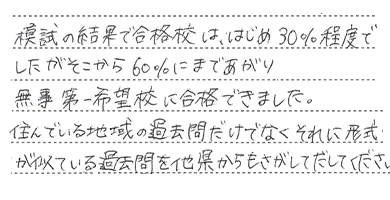 模試の結果で合格校は、はじめ30%程度で
したがそこから60%にまであがり
無事第一希望校に合格できました。
住んでいる地域の過去問だけでなくそれに形式
が似ている過去問を他県からもさがしてだしてくださ